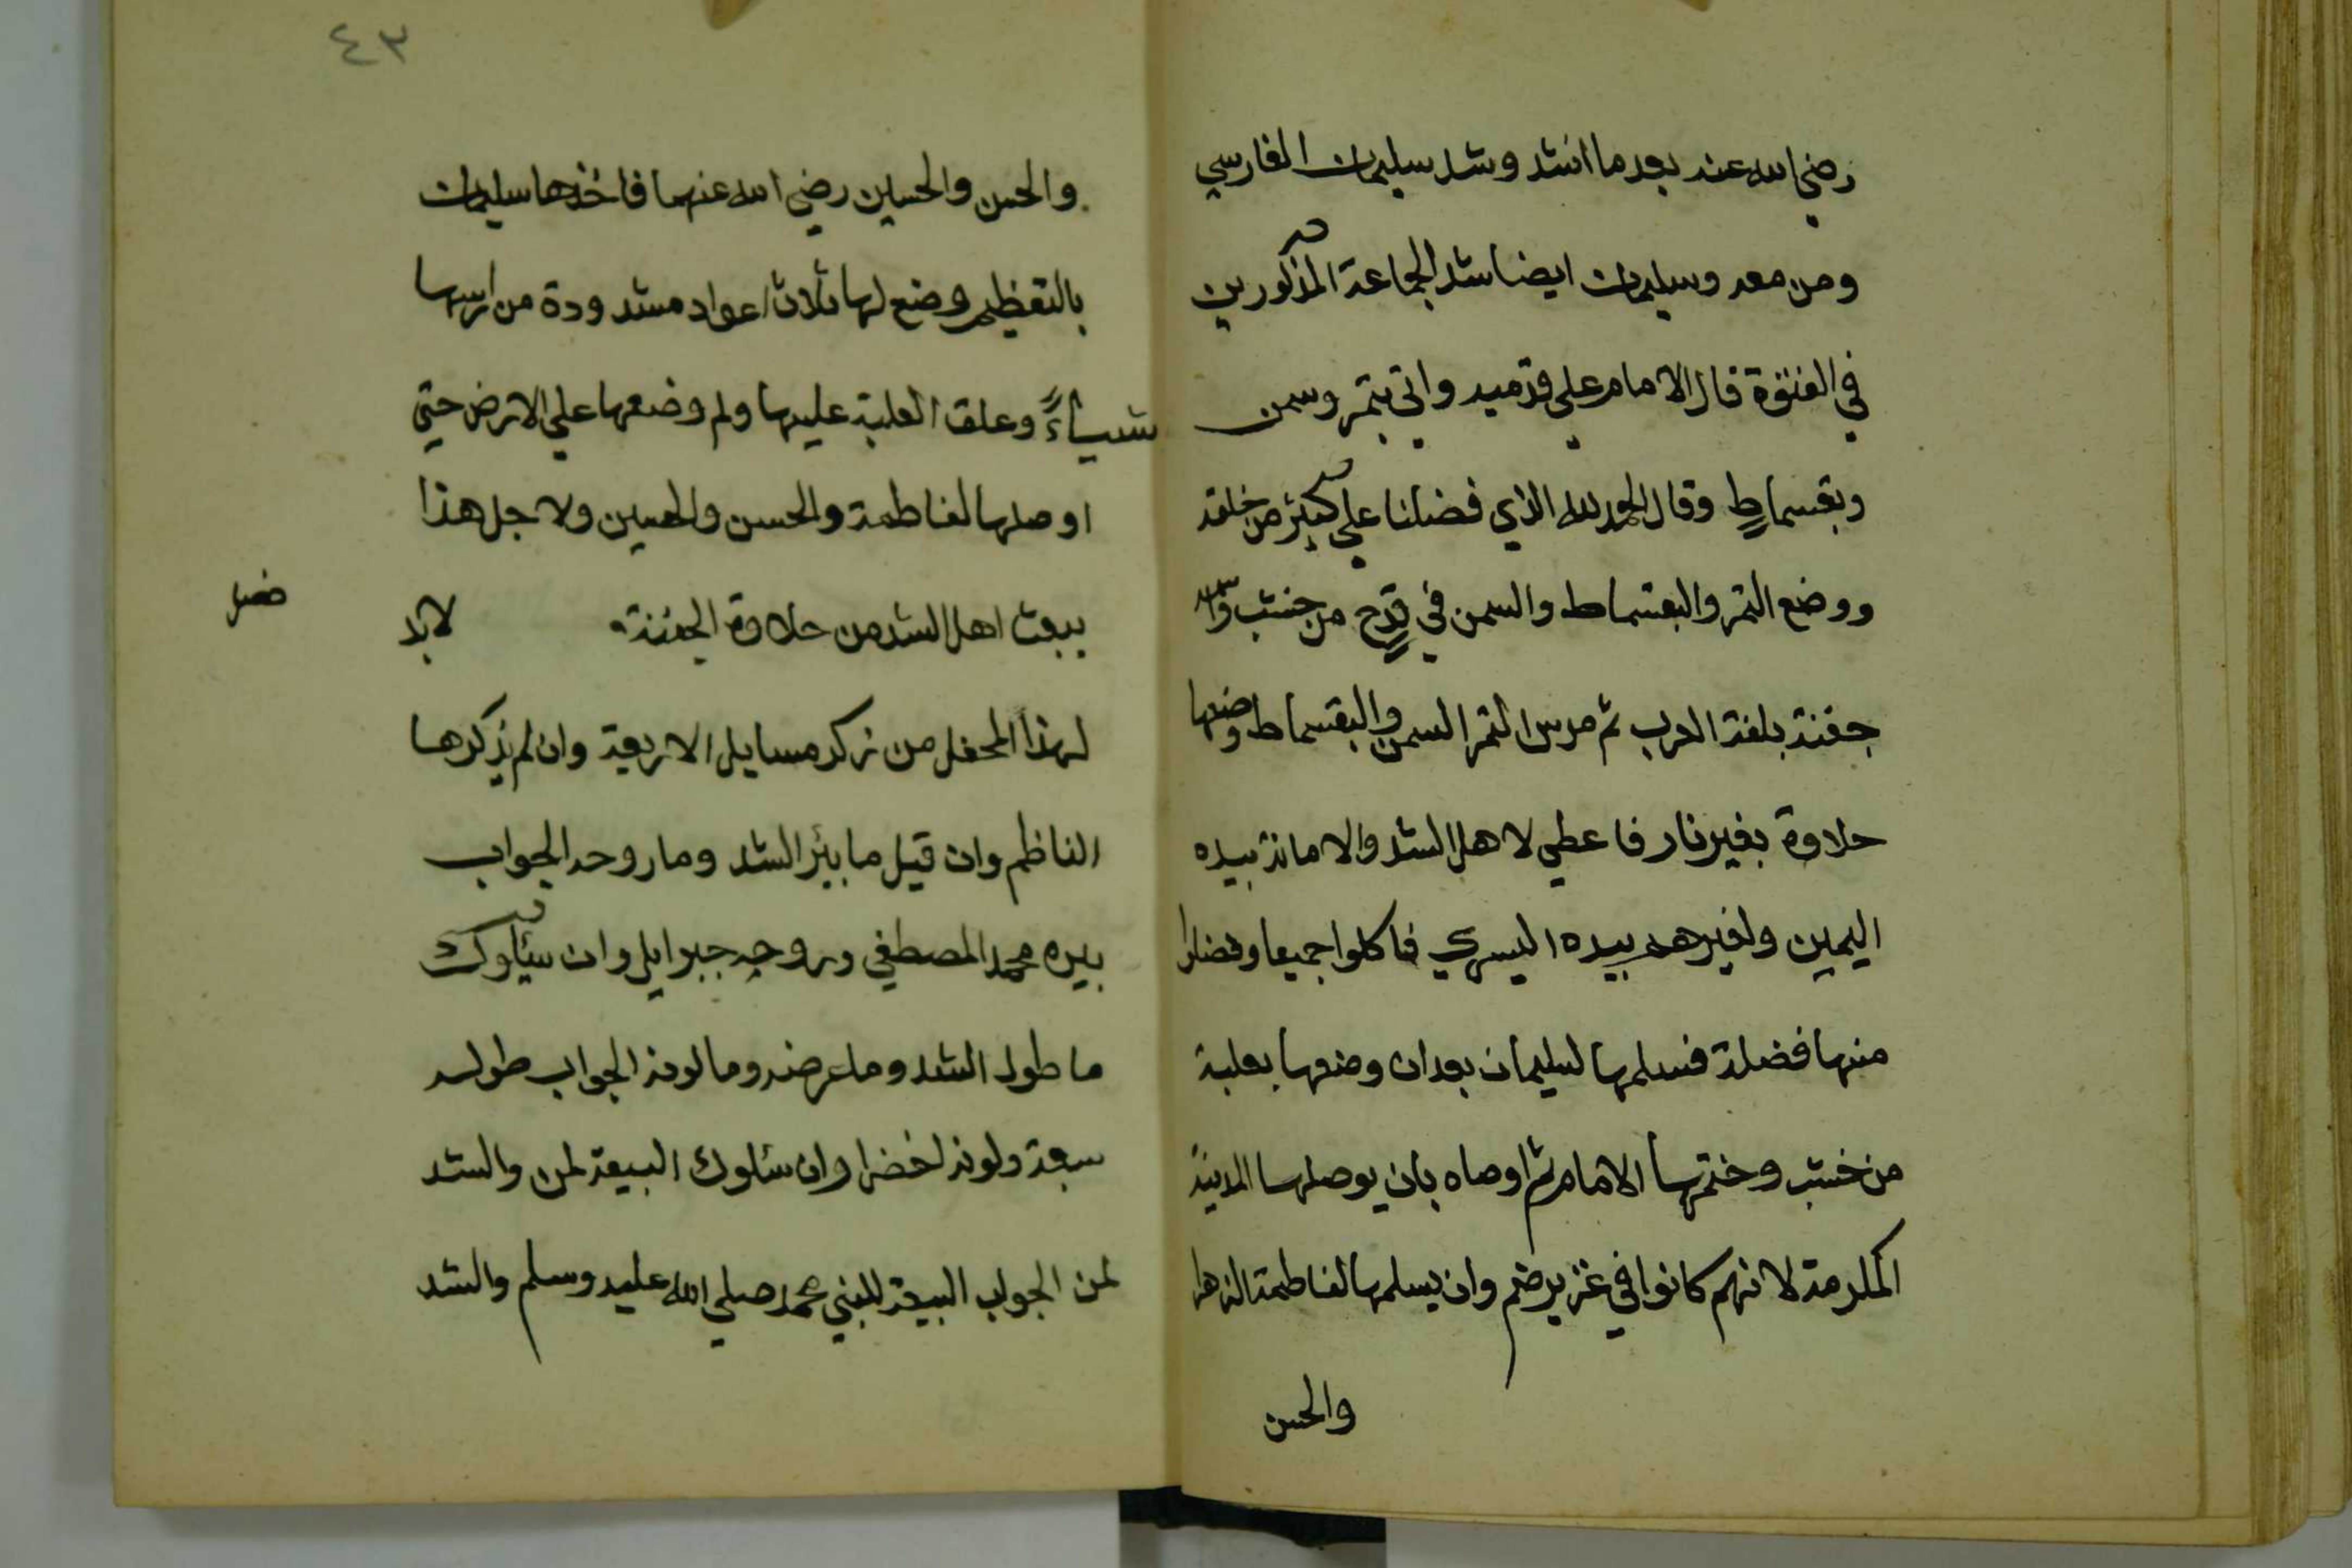 رضي الله عنه بعد ما انشد وشد سليمان الفارسي
ومن معه وسليمان ايضا شد الجماعة المذكورين
في الفتوة قال الامام علي قدميه واتي بتمر وسمن
وبقسماطٍ وقال الحمد لله الذي فضلنا علي كثير من خلقه
ووضع التمر والبقسماط والسمن في قدح من خشب
جفنة بلغة العرب ثم مرس التمر السمن والبقسماط وضعها
حلاوة بغير نار فاعطي لاهل الشد والامانة بيده
اليمين ولغيرهم بيده اليسري فاكلوا جميعا وفضلوا
منها فضلة فسلمها لسليمان بعد ان وضعها بعلبة
من خشب وختمها الامام ثم اوصاه بان يوصلها المدينة
المكرمة لانهم كانوا في غزير خم وان يسلمها لفاطمة الزهرا
والحسن
٤٣
والحسن والحسين رضي الله عنهما فاخذها سليمان
بالتعظيم وضع لها ثلاث اعواد مشدودة من ارسها
شيباءً وعلق العلبة عليها ولم وضعها علي الارض حتي
اوصلها لفاطمة والحسن والحسين ولاجل هذا
يبعث اهل الشد من حلاوة الجفنة لا بد
فصل
لهذا المحفل من ذكر مسايل الاربعة وان لم يذكرها
الناظم وان قيل ما بير الشد وما روحه الجواب
بيره محمد المصطفي وروحه جبرايل وان سئلوك
ما طول الشد وما عرضه وما لونه الجواب طوله
سبعة ولونه اخضر وان سئلوك البيعة لمن والشد
لمن الجواب البيعة للنبي محمد صلي الله عليه وسلم والشد